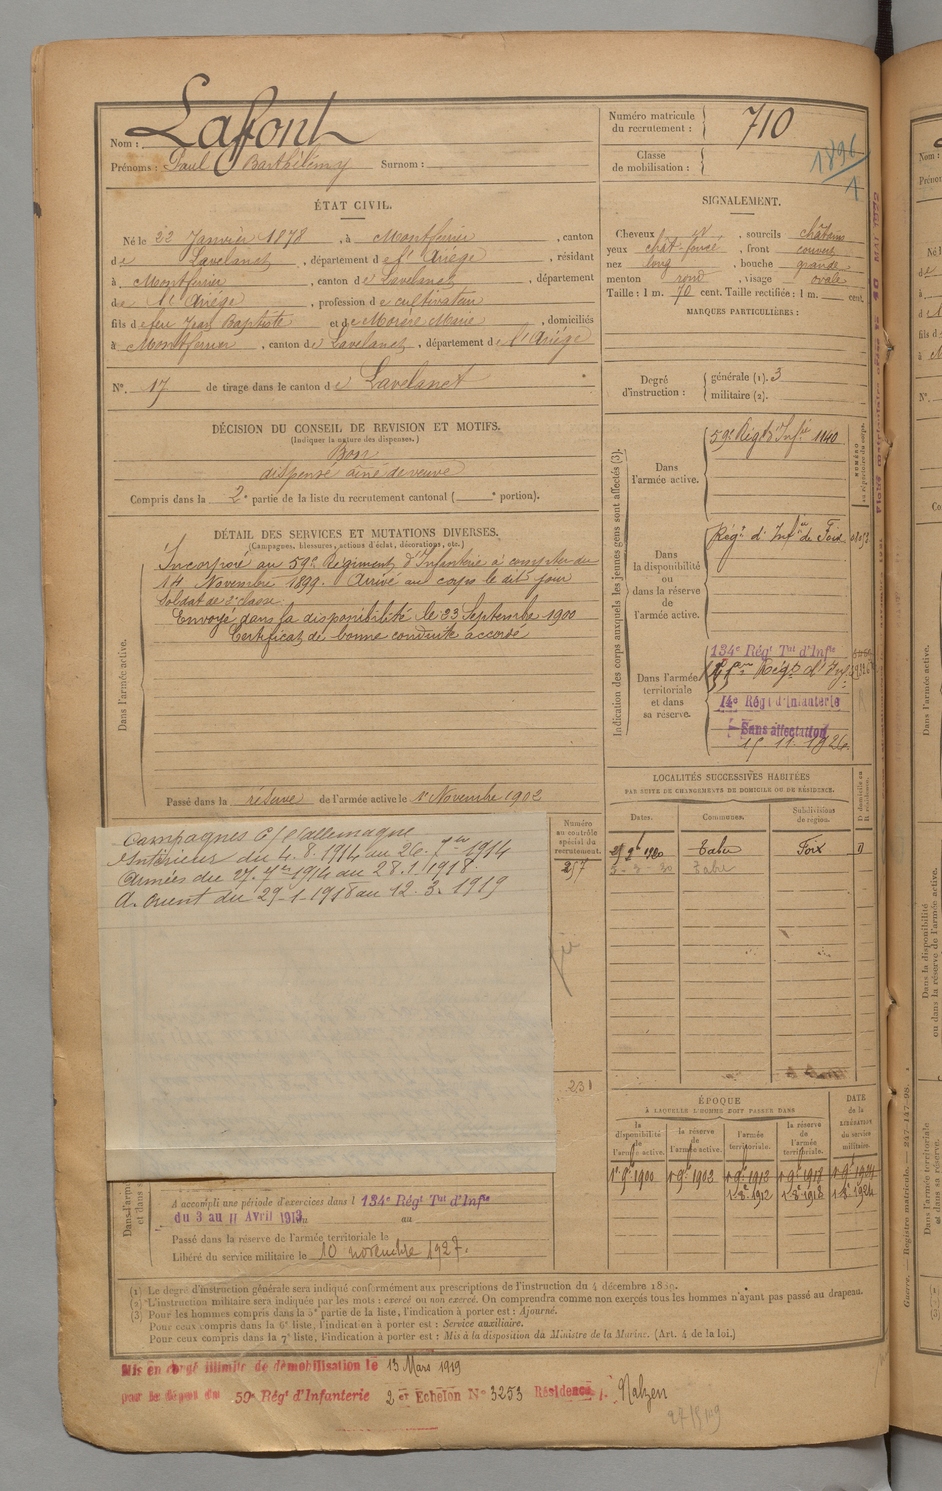 Nom : Laffont
Prénoms : Paul Barthélémy Surnom :
Numéro matricule du recrutement : 710
Classe de mobilisation :
1896
ÉTAT CIVIL.
Né le 22 Janvier 1878, à Montferrier, canton
de Lavelanet, département de l'Ariège, résidant
à Montferrier, canton de Lavelanet, département
de l'Ariège, profession de cultivateur
fils de feu Jean Baptiste et de Morère Marie, domiciliés
à Montferrier, canton de Lavelanet, département de l'Ariège
N°. 17 de tirage dans le canton de Lavelanet
SIGNALEMENT.
Cheveux id, sourcils châtains
yeux chat-foncé, front couvert
nez long, bouche grande
menton rond, visage ovale
Taille : 1 m. 70 cent. Taille rectifiée : 1 m. cent.
MARQUES PARTICULIÈRES :
Degré d'instruction : générale (1). 3
militaire (2).
DÉCISION DU CONSEIL DE REVISION ET MOTIFS.
(Indiquer la nature des dispenses.)
Bon
dispensé aîné de veuve
Compris dans la 2e partie de la liste du recrutement cantonal ( e portion).
DÉTAIL DES SERVICES ET MUTATIONS DIVERSES.
(Campagnes, blessures, actions d'éclat, décorations, etc.)
Dans l'armée active.
Incorporé au 59e Régiment d'Infanterie à compter du
14 Novembre 1899. Arrivé au corps le dit jour
soldat de 2e classe
Envoyé dans la disponibilité le 23 Septembre 1900
Certificat de bonne conduite accordé
Passé dans la réserve de l'armée active le 1er Novembre 1902
Indication des corps auxquels les jeunes gens sont affectés (3).
Dans l'armée active.
59e Régt d'Infie 1140
Dans la disponibilité ou dans la réserve de l'armée active.
Régt d'Infie de Foix
Dans l'armée territoriale et dans sa réserve.
134e Régt Tal d'Infie
14e Régt d'Infanterie
Sans affectation
15.11.1926
LOCALITÉS SUCCESSIVES HABITÉES
PAR SUITE DE CHANGEMENTS DE DOMICILE OU DE RÉSIDENCE.
Dates. Communes. Subdivisions de région.
Tabre Foix D
Tabre
Numéro au contrôle spécial du recrutement.
257
231
Campagnes C/ l'allemagne
Intérieur du 4.8.1914 au 26.7bre 1914
Armées du 27.7bre 1914 au 28.1.1918
A. Orient du 29-1-1918 au 12.3.1919
ÉPOQUE
À LAQUELLE L'HOMME DOIT PASSER DANS
la disponibilité de l'armée active. la réserve de l'armée active. l'armée territoriale. la réserve de l'armée territoriale. DATE de la LIBÉRATION du service militaire.
A accompli une période d'exercices dans l 134e Régt Tal d'Infie
du 3 au 11 Avril 1913 au
Passé dans la réserve de l'armée territoriale le
Libéré du service militaire le 10 novembre 1927.
(1) Le degré d'instruction générale sera indiqué conformément aux prescriptions de l'instruction du 4 décembre 1889.
(2) L'instruction militaire sera indiquée par les mots : exercé ou non exercé. On comprendra comme non exercés tous les hommes n'ayant pas passé au drapeau.
(3) Pour les hommes compris dans la 5e partie de la liste, l'indication à porter est : Ajourné.
Pour ceux compris dans la 6e liste, l'indication à porter est : Service auxiliaire.
Pour ceux compris dans la 7e liste, l'indication à porter est : Mis à la disposition du Ministre de la Marine. (Art. 4 de la loi.)
Mis en congé illimité de démobilisation le 13 Mars 1919
par le dépôt du 59e Régt d'Infanterie 2e Echelon N° 3253 Résidence Nalzen